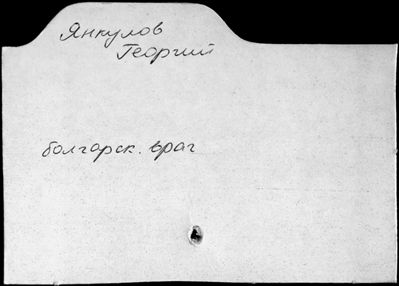 Янкулов
Георгий
болгарск. враг